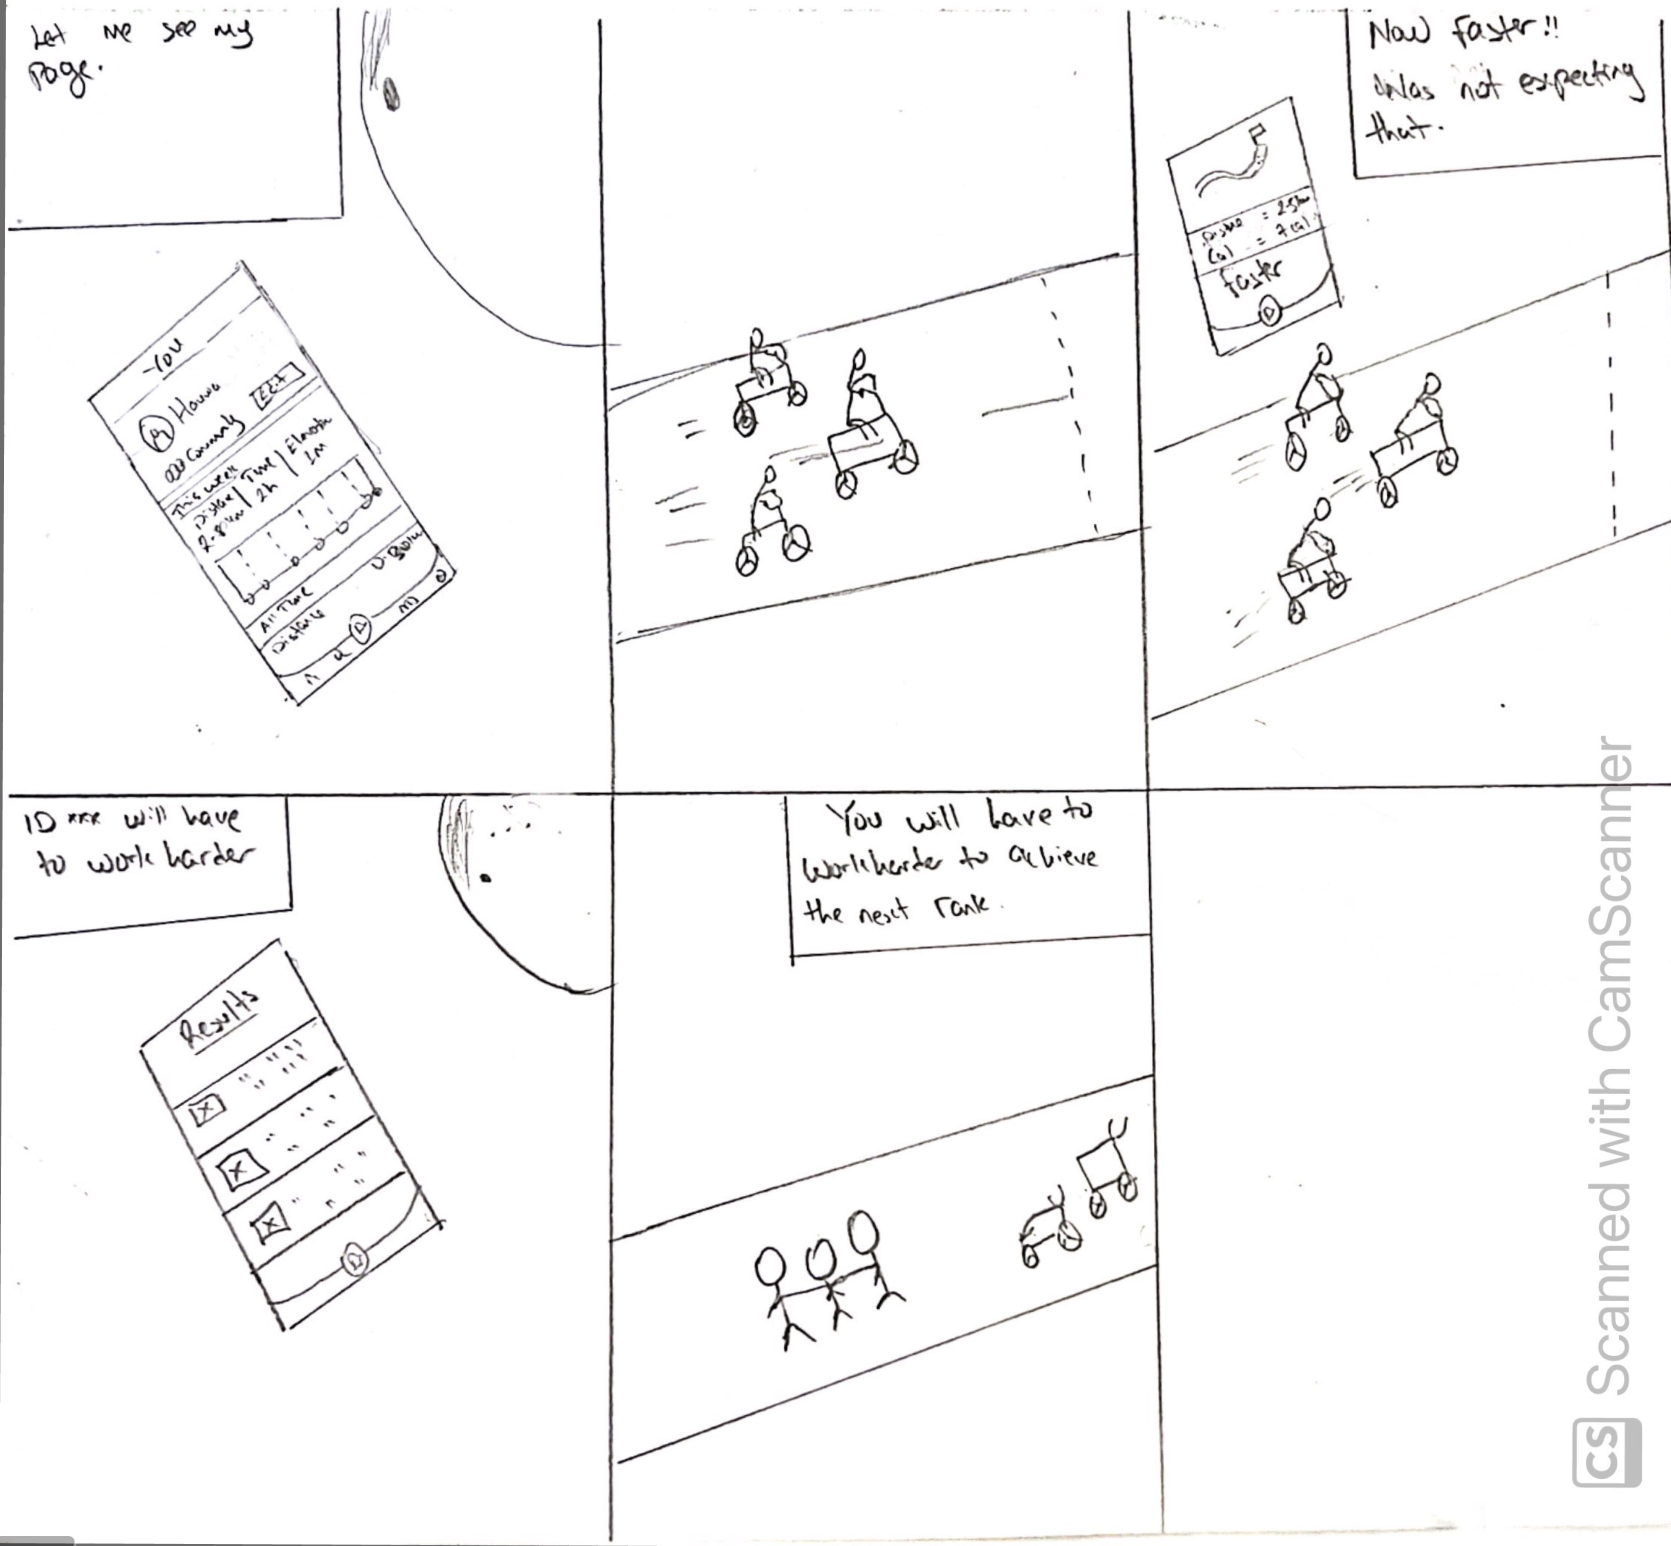 Let me see my
Page.
You
Edit
Community
This week
Distance | Time | Elevation
2h | 1M
All Time
Distance
Now faster!!
Was not expecting
that.
Faster
ID *** will have
to work harder
Results
You will have to
work harder to achieve
the next rank.
CS Scanned with CamScanner